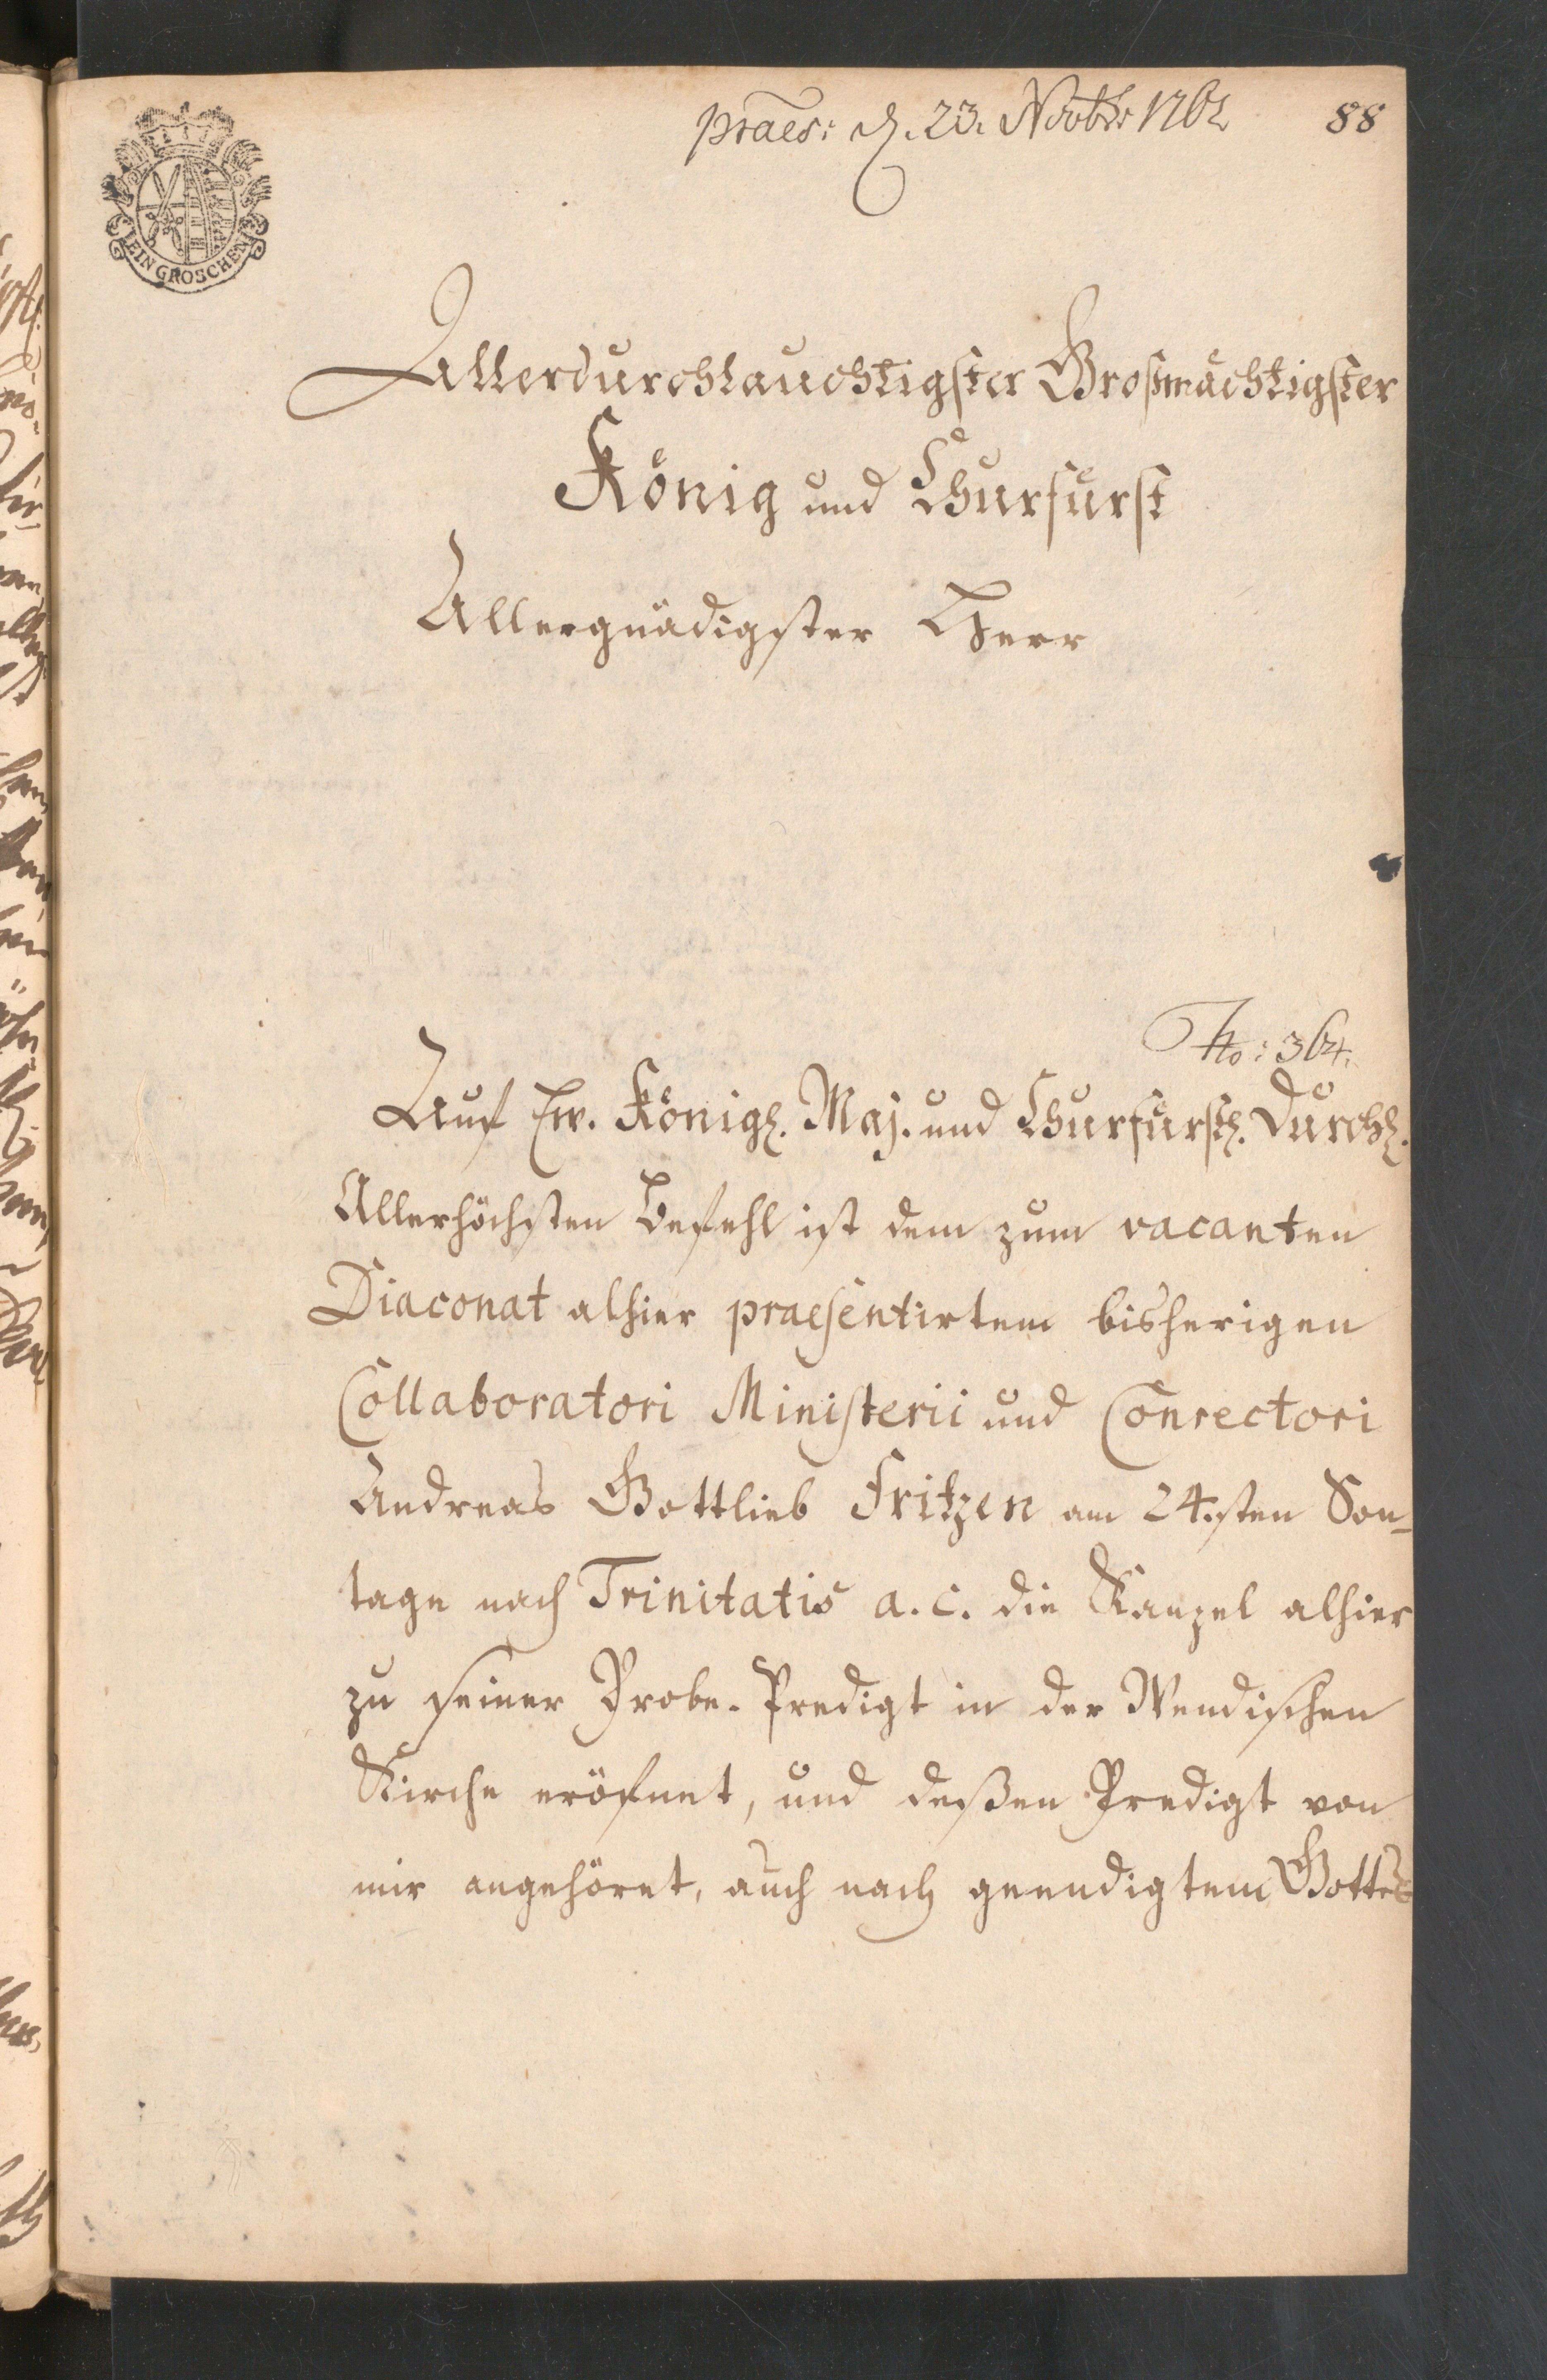 praes: d. 23. Novbr: 1762
88
EIN GROSCHEN
Allerdurchlauchtigster Großmächtigster
König und Churfürst
Allergnädigster Herr
No: 364.
Auf Ew. Königl. Maj. und Churfürstl. Durchl.
Allerhöchsten Befehl ist dem zum vacanten
Diaconat alhier praesentirtem bisherigen
Collaboratori Ministerii und Conrectori
Andreas Gottlieb Fritzen am 24.sten Son-
tage nach Trinitatis a. c. die Kanzel alhier
zu seiner Probe-Predigt in der Wendischen
Kirche eröfnet, und deßen Predigt von
mir angehöret, auch nach geendigtem Gottes